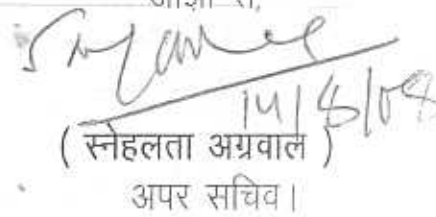 आज्ञा से,
14/8/08
( स्नेहलता अग्रवाल )
अपर सचिव।